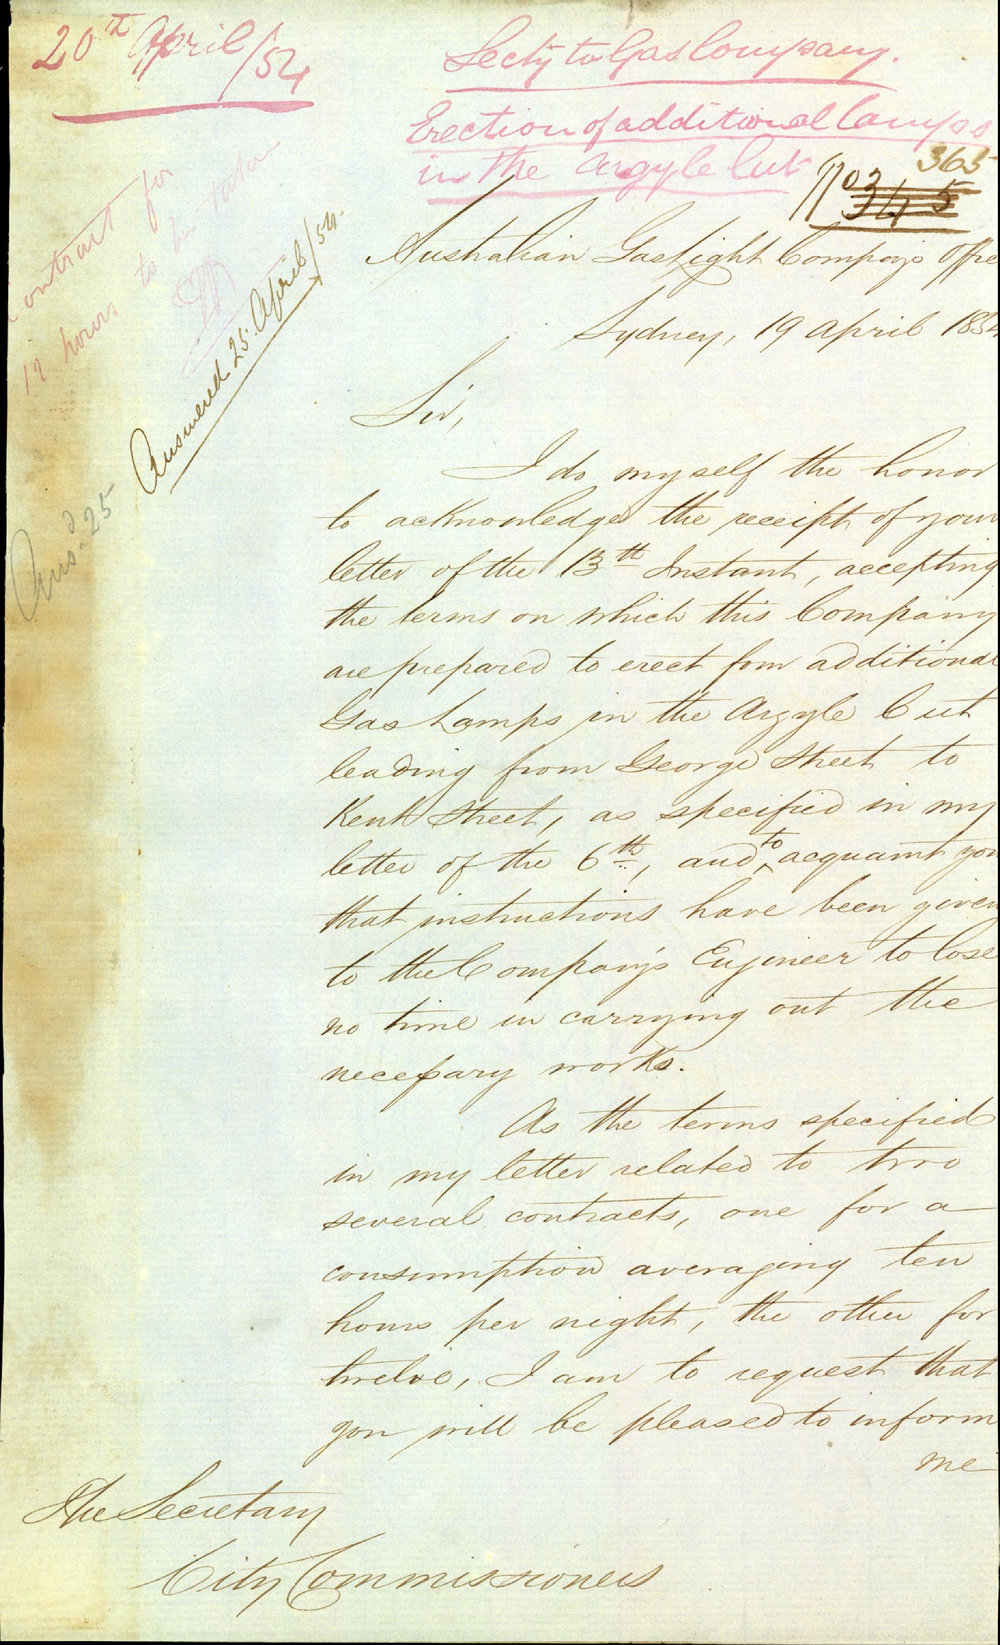 20th April/54
Secty to Gas Company.
Erection of additional lamps
in the Argyle Cut
365
No 345
Contract for
12 hours to be taken
Answered 25. April/54.
Ansd. 25
Australian Gaslight Company's Office
Sydney, 19 April 1854
Sir,
I do myself the honor
to acknowledge the receipt of your
letter of the 13th Instant, accepting
the terms on which this Company
are prepared to erect four additional
Gas Lamps in the Argyle Cut
leading from George Street to
Kent Street, as specified in my
letter of the 6th, and to acquaint you
that instructions have been given
to the Company's Engineer to lose
no time in carrying out the
necessary works.
As the terms specified
in my letter related to two
several contracts, one for a
consumption averaging ten
hours per night, the other for
twelve, I am to request that
you will be pleased to inform
me
The Secretary
City Commissioners